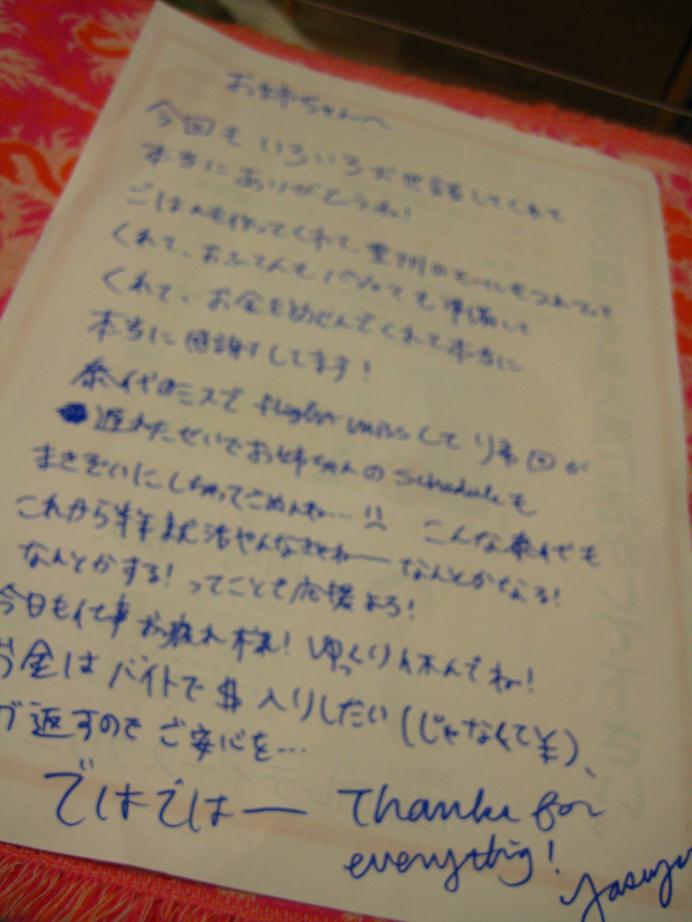 お姉ちゃんへ
今回もいろいろお世話してくれて
本当にありがとうね!
ごはんも作ってくれて、豊洲のモールもつれてって
くれて、おふとんも パジャマも準備して
くれて、お金もめぐんでくれて本当に
本当に感謝してます!
泰代のミスで flight missして帰国が
遅れたせいでお姉ちゃんのscheduleも
まきぞいにしちゃってごめんね... こんな泰代も
これから半年就活やんなきゃねー なんとかなる!
なんとかする! ってことで応援よろ!
今日も仕事お疲れ様! ゆっくり休んでね!
お金はバイトで $ 入りしだい (じゃなくて¥)、
返すので ご安心を...
ではではー Thanks for
everything!